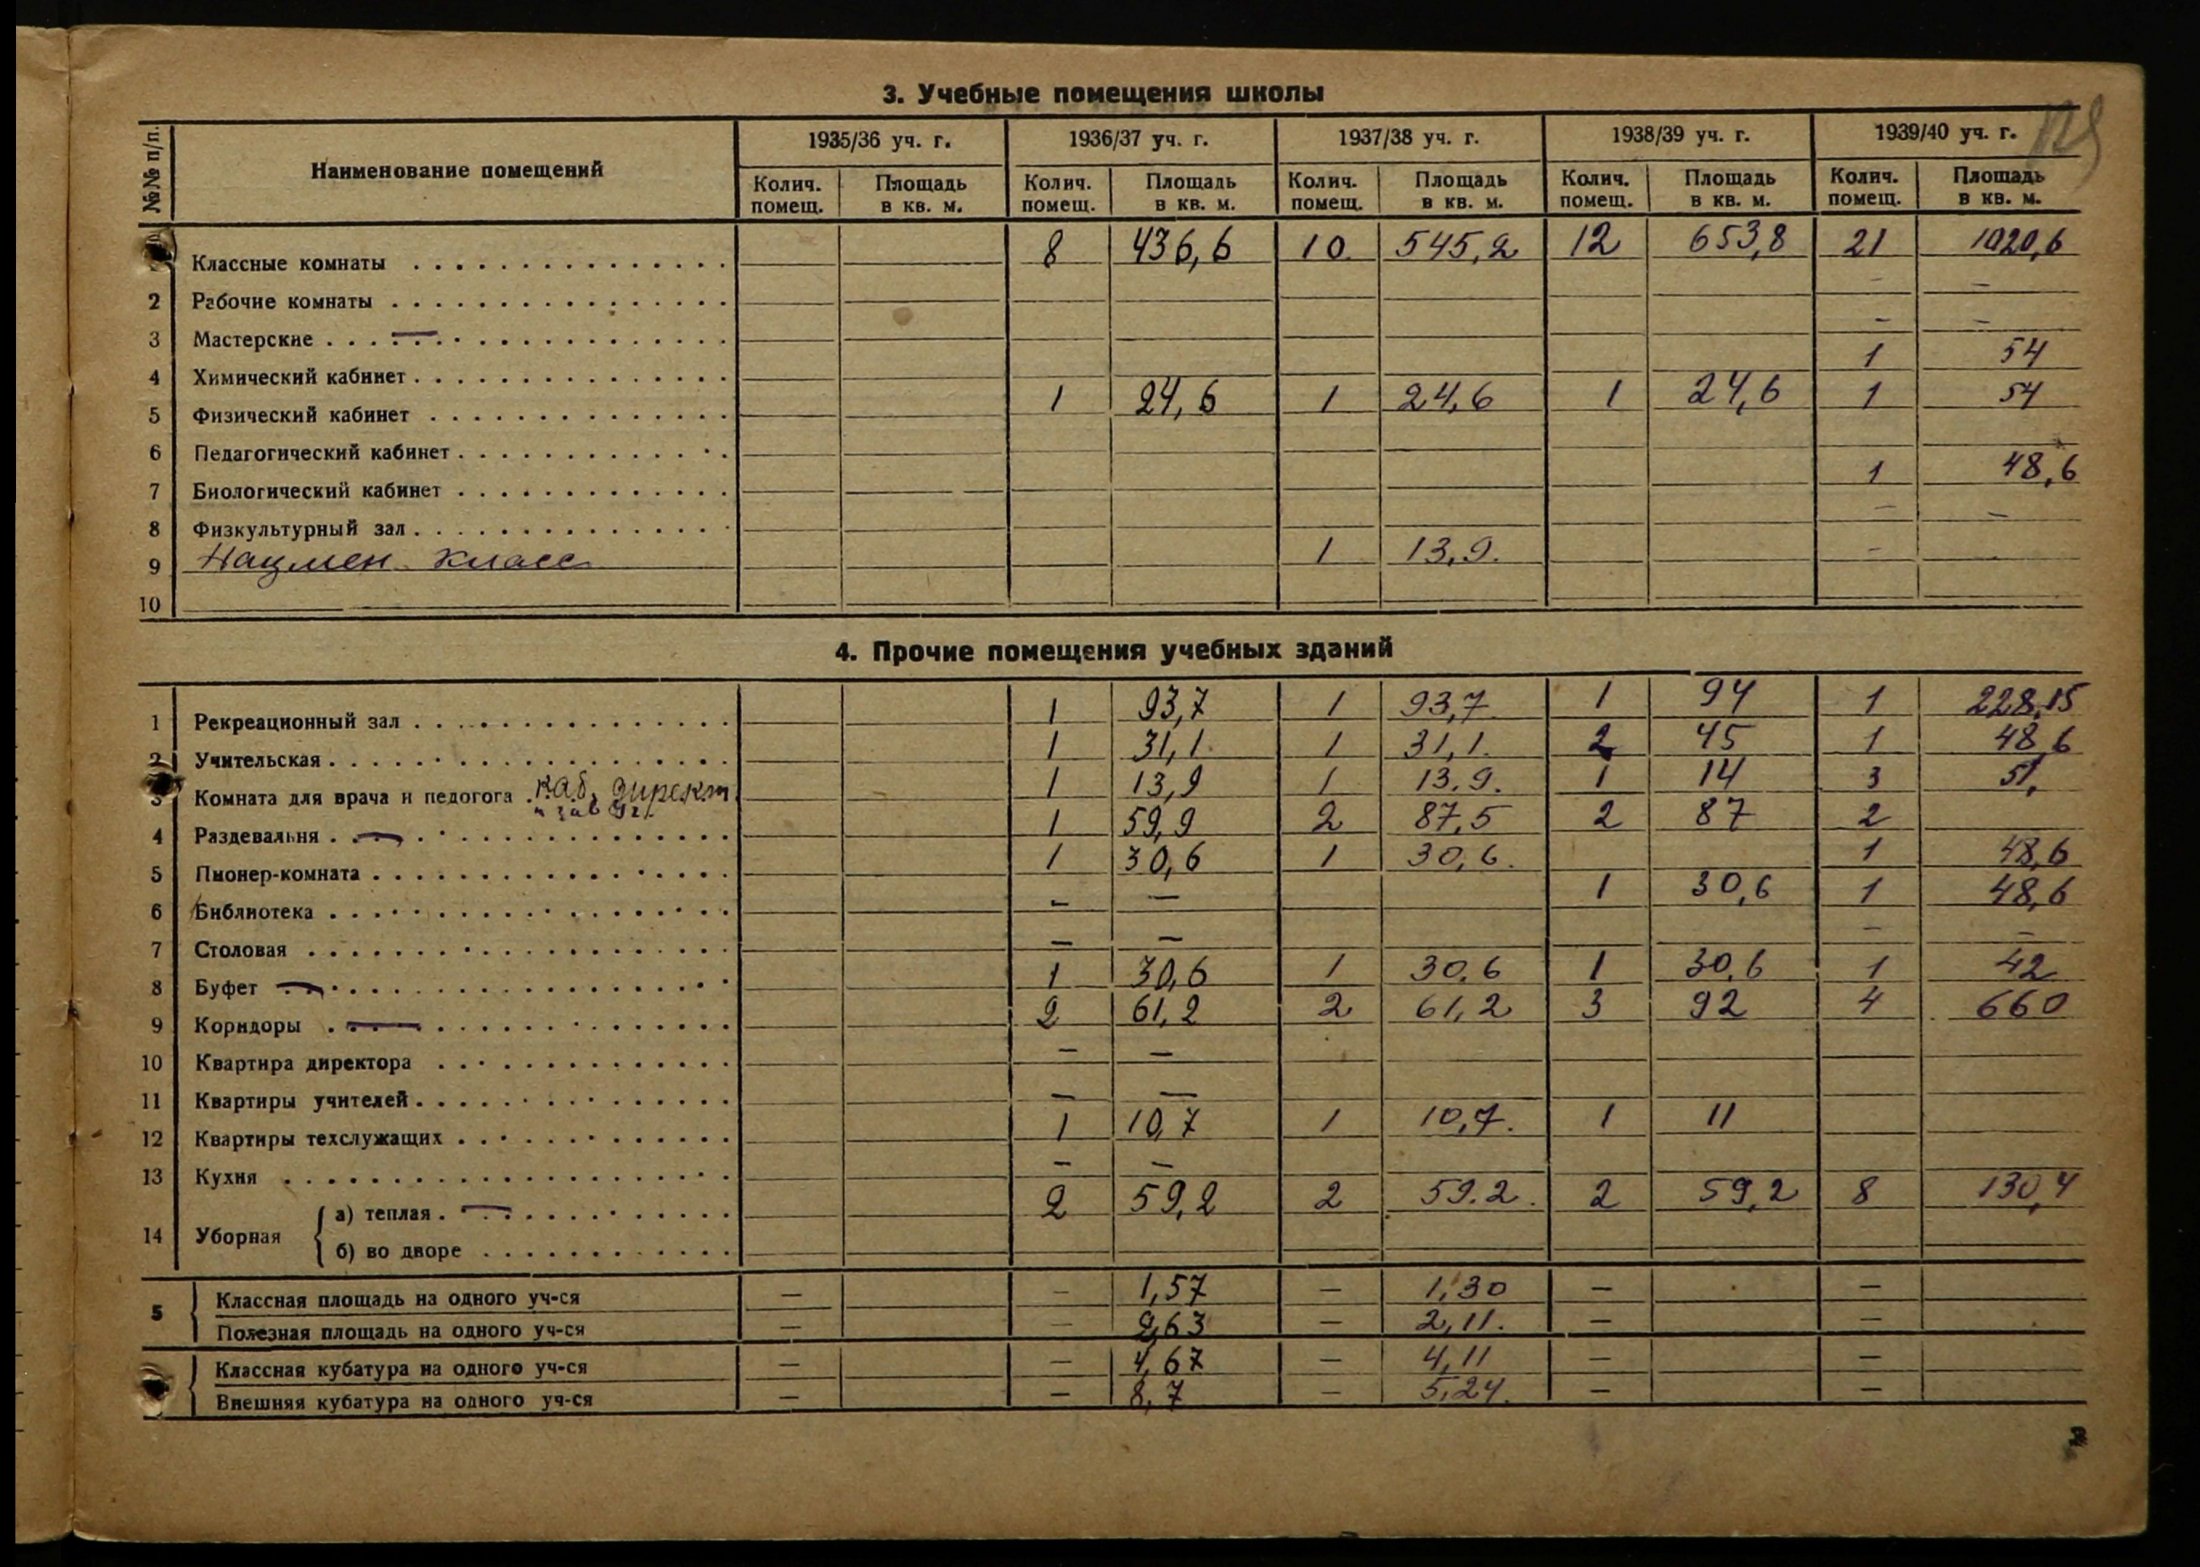 129
3. Учебные помещения школы
№№ п/п. Наименование помещений 1935/36 уч. г. 1936/37 уч. г. 1937/38 уч. г. 1938/39 уч. г. 1939/40 уч. г.
Колич. помещ. Площадь в кв. м. Колич. помещ. Площадь в кв. м. Колич. помещ. Площадь в кв. м. Колич. помещ. Площадь в кв. м. Колич. помещ. Площадь в кв. м.
Классные комнаты 8 436,6 10. 545,2 12 653,8 21 1020,6
2 Рабочие комнаты – –
3 Мастерские – –
4 Химический кабинет 1 54
5 Физический кабинет 1 24,6 1 24,6 1 24,6 1 54
6 Педагогический кабинет
7 Биологический кабинет 1 48,6
8 Физкультурный зал – –
9 Нацмен. класс 1 13,9. –
10
4. Прочие помещения учебных зданий
1 Рекреационный зал 1 93,7 1 93,7 1 94 1 228,15
2 Учительская 1 31,1. 1 31,1. 2 45 1 48,6
3 Комната для врача и педогога каб. директ. и зав уч. 1 13,9 1 13.9. 1 14 3 51,
4 Раздевальня 1 59,9 2 87,5 2 87 2
5 Пионер-комната 1 30,6 1 30,6. 1 48,6
6 Библиотека – – 1 30,6 1 48,6
7 Столовая – – – –
8 Буфет 1 30,6 1 30.6 1 30,6 1 42
9 Коридоры 2 61,2 2 61,2 3 92 4 660
10 Квартира директора – –
11 Квартиры учителей – –
12 Квартиры техслужащих 1 10,7 1 10,7. 1 11
13 Кухня – –
14 Уборная а) теплая 2 59,2 2 59.2. 2 59,2 8 130,4
б) во дворе
5 Классная площадь на одного уч-ся – – 1,57 – 1,30 – –
Полезная площадь на одного уч-ся – – 2,63 – 2,11. – –
Классная кубатура на одного уч-ся – – 4,67 – 4,11 – –
Внешняя кубатура на одного уч-ся – – 8,7 – 5,24. – –
3